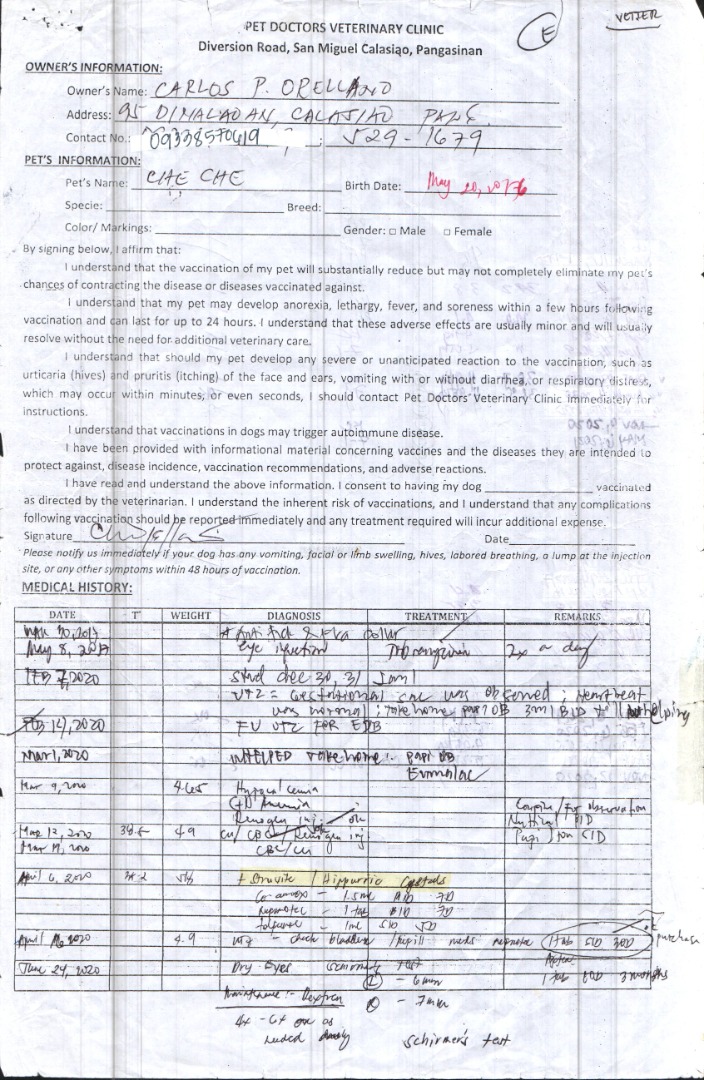 VETTER
E
PET DOCTORS VETERINARY CLINIC
Diversion Road, San Miguel Calasiao, Pangasinan
OWNER'S INFORMATION:
Owner's Name: CARLOS P. ORELLANO
Address: 95 DINALAOAN, CALASIAO PANG.
Contact No.: 09338570619 ; 529-1679
PET'S INFORMATION:
Pet's Name: CHE CHE Birth Date: May 20,
Specie: Breed:
Color/ Markings: Gender: □ Male □ Female
By signing below, I affirm that:
I understand that the vaccination of my pet will substantially reduce but may not completely eliminate my pet's
chances of contracting the disease or diseases vaccinated against.
I understand that my pet may develop anorexia, lethargy, fever, and soreness within a few hours following
vaccination and can last for up to 24 hours. I understand that these adverse effects are usually minor and will usually
resolve without the need for additional veterinary care.
I understand that should my pet develop any severe or unanticipated reaction to the vaccination, such as
urticaria (hives) and pruritis (itching) of the face and ears, vomiting with or without diarrhea, or respiratory distress,
which may occur within minutes, or even seconds, I should contact Pet Doctors Veterinary Clinic immediately for
instructions.
I understand that vaccinations in dogs may trigger autoimmune disease.
I have been provided with informational material concerning vaccines and the diseases they are intended to
protect against, disease incidence, vaccination recommendations, and adverse reactions.
I have read and understand the above information. I consent to having my dog vaccinated
as directed by the veterinarian. I understand the inherent risk of vaccinations, and I understand that any complications
following vaccination should be reported immediately and any treatment required will incur additional expense.
Signature Date
Please notify us immediately if your dog has any vomiting, facial or limb swelling, hives, labored breathing, a lump at the injection
site, or any other symptoms within 48 hours of vaccination.
MEDICAL HISTORY:
DATE T° WEIGHT DIAGNOSIS TREATMENT REMARKS
30, 2017 + Anti tick & flea collar
May 8, 2017 Eye infection Tobramycin 2x a day
FEB 7, 2020 dec 30, 31 Jan 1
UTZ = Gestational sac was observed ; Heartbeat
was normal ; take home papi OB 3ml BID helping
FEB 14, 2020 FU UTZ FOR EDB
Mar 1, 2020 WHELPED take home : papi OB
Enmalac
Mar 9, 2020 4.65 Hypocalcemia
Anemia Confine / For observation
Renogen inj. - ok BID
Mar 12, 2020 38.5 4.9 CU/ CBC / Renogen inj Papi Iron SID
Mar 19, 2020 CBC/CU
April 6, 2020 + Struvite / Hippuric Crystals
Co-amox - 1.5ml BID 7D
- 1 tab BID 7D
- 1ml SID 5D
April 16 2020 4.9 UTZ - check bladder / refill meds 1 tab SID 30D purchase
June 24, 2020 Dry Eyes schirmer test 1 tab EOD 3 months
L - 6 mm
Maintenance : R - 7 mm
4x - 6x as
needed daily schirmer's test